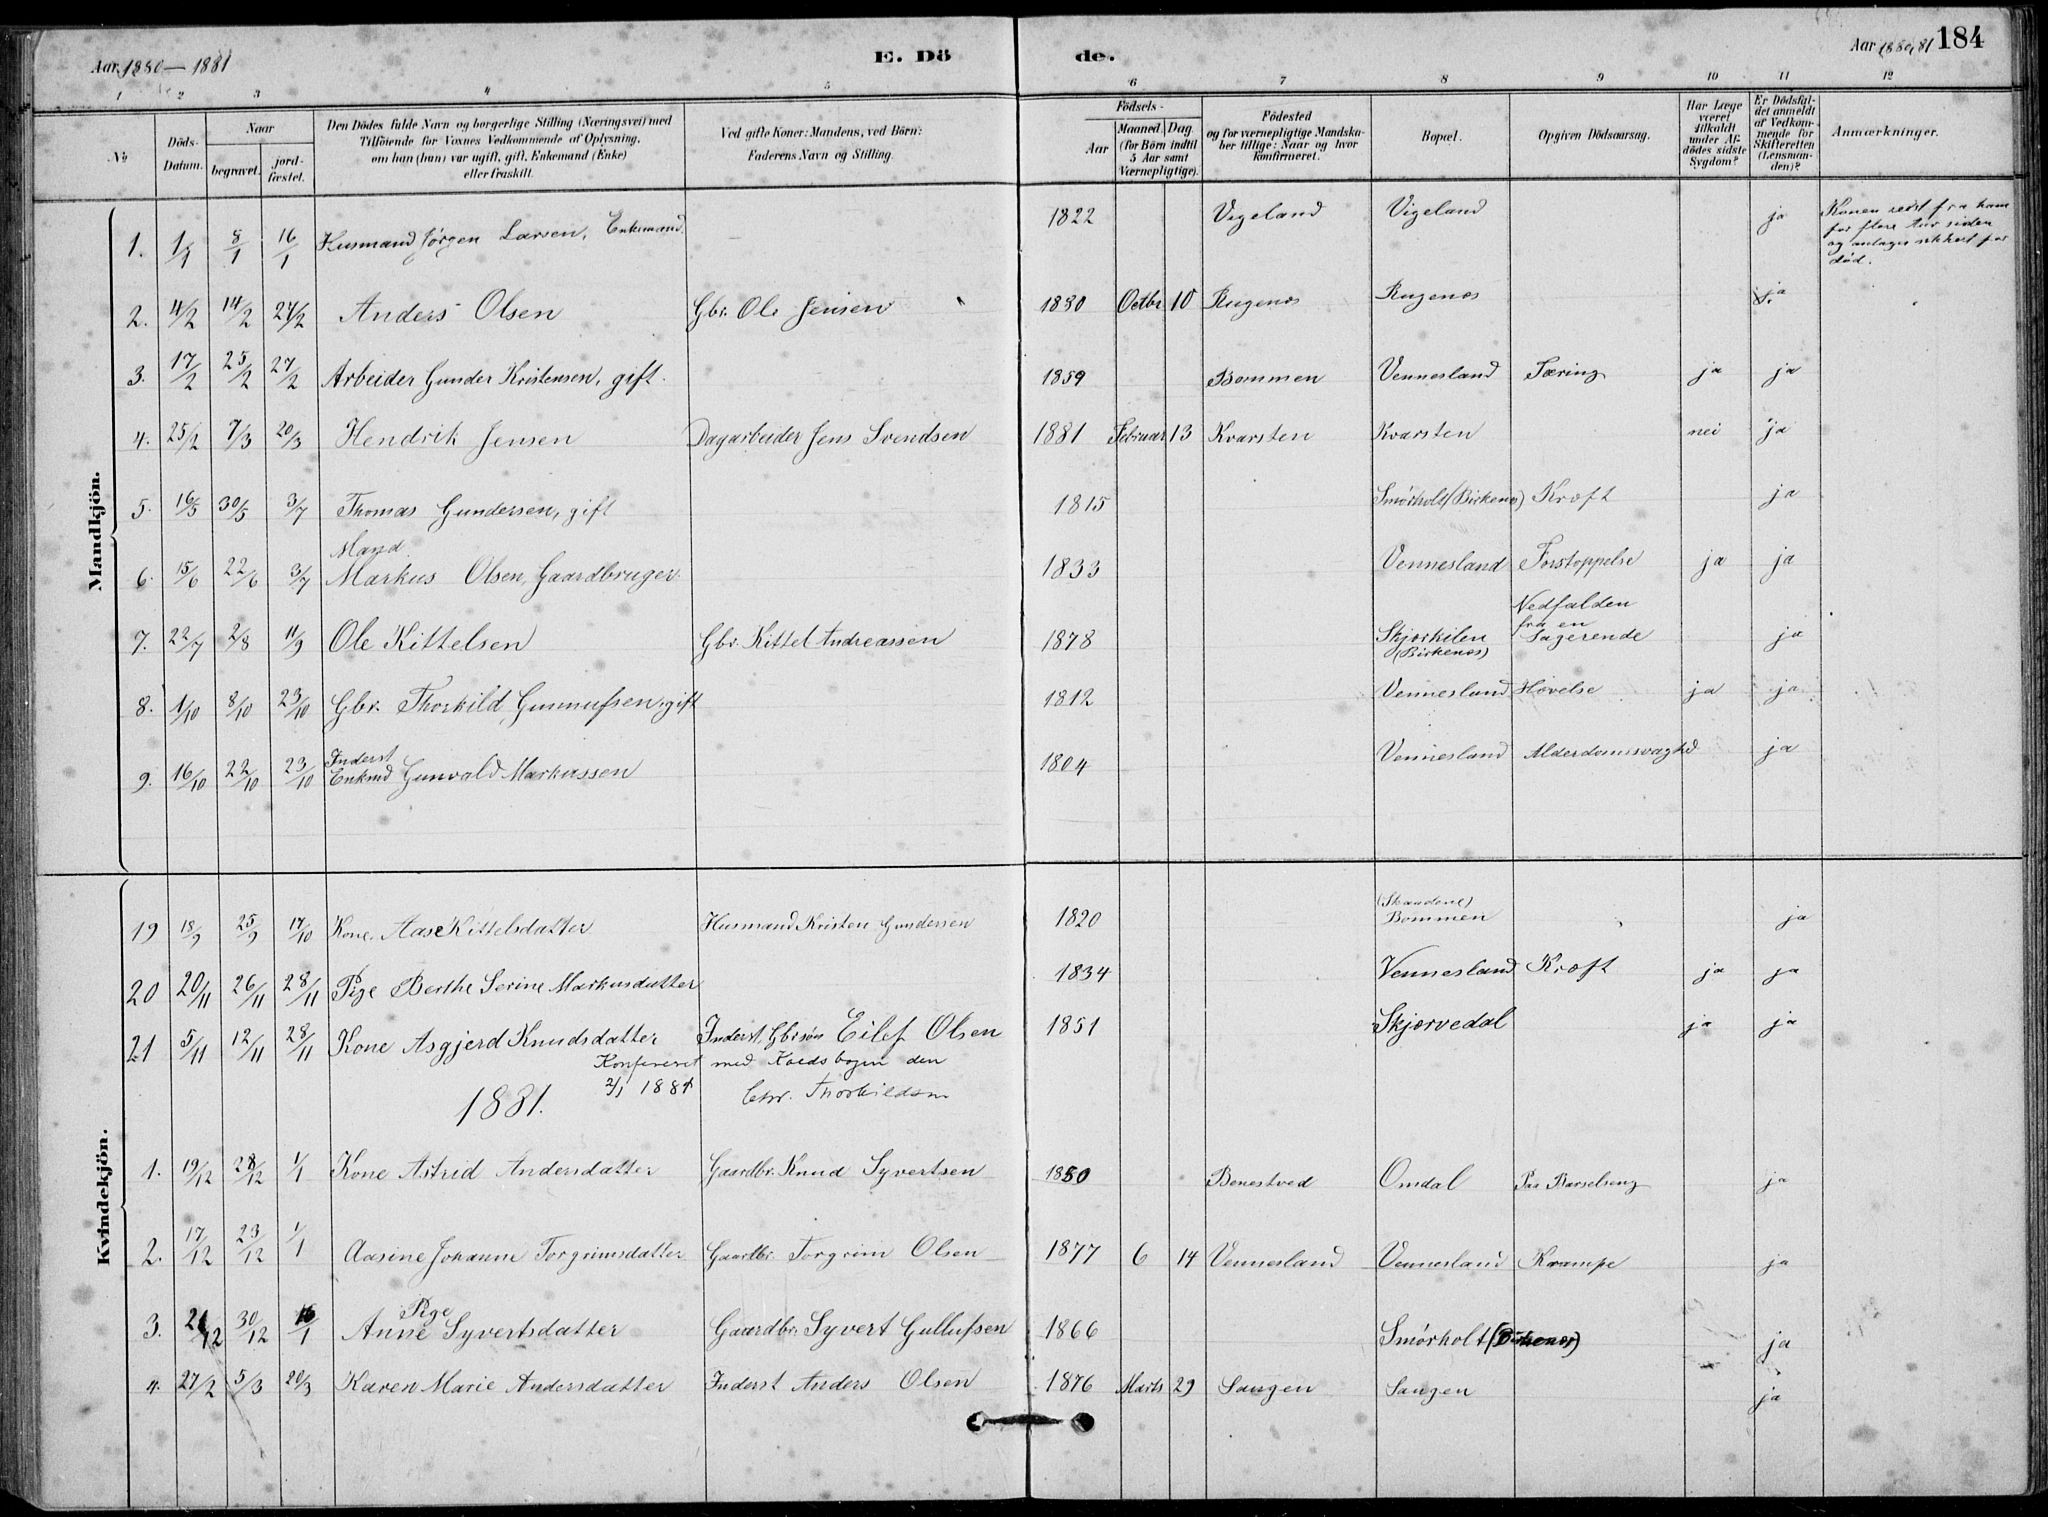 Aar 1880 — 1881 E. Dö de. Aar 1880, 81 184
1 2 3 4 5 6 7 8 9 10 11 12
No
Döds-Datum.
Naar
begravet.
jord-fæstet.
Den Dödes fulde Navn og borgerlige Stilling (Næringsvei) med
Tilföiende for Voxnes Vedkommende af Oplysning,
om han (hun) var ugift, gift, Enkemand (Enke)
eller fraskilt.
Ved gifte Koner: Mandens, ved Börn:
Faderens Navn og Stilling.
Födsels-
Aar
Maaned. Dag.
(for Börn indtil
5 Aar samt
Værnepligtige).
Födested
og for værnepligtige Mandska-
ber tillige: Naar og hvor
konfirmeret.
Bopæl.
Opgiven Dödsaarsag.
Har Læge
været
tilkaldt
under Af-
dödes sidste
Sygdom?
Er Dödsfal-
det anmeldt
af Vedkom-
mende for
Skifteretten
(Lensman-
den)?
Anmærkninger.
Mandkjön.
1. 1/1 8/1 16/1 Husmand Jørgen Larsen, Enkemand. — 1822 Vigeland Vigeland ja Konen reist fra ham
for flere Aar siden
og antages sikkert for
död.
2. 4/2 14/2 27/2 Anders Olsen Gbr. Ole Jensen 1880 Octbr 10 Rugenæs Rugenæs ja
3. 17/2 25/2 27/2 Arbeider Gunder Kristensen, gift. 1859 Bommen Vennesland Tæring ja ja
4. 25/2 7/3 20/3 Hendrik Jensen Dagarbeider Jens Svendsen 1881 Februar 13 Kvarsten Kvarsten nei ja
5. 16/5 30/5 3/7 Thomas Gundersen, gift 1815 Smørholt (Birkenæs) Kræft ja
Mand
6. 15/6 22/6 3/7 Markus Olsen, Gaardbruger 1833 Vennesland Forstoppelse ja ja
7. 22/7 2/8 11/9 Ole Kittelsen Gbr. Kittel Andreassen 1878 Skjærkilen (Birkenæs) Nedfalden
fra en
Sagerende ja
8. 1/10 8/10 23/10 Gbr. Thorkild Gunnufsen, gift 1812 Vennesland Hovelse ja ja
9. 16/10 22/10 23/10 Inderst
Enkmd Gunvald Markussen 1804 Vennesland Alderdomssvaghd ja
Kvindekjön.
19 18/9 25/9 17/10 Kone. Aase Kittelsdatter Husmand Kristen Gundersen 1820 Bommen ja
20 20/11 26/11 28/11 Pige Berthe Serine Markusdatter 1834 Vennesland Kræft ja ja
21 5/11 12/11 28/11 Kone Asgjerd Knudsdatter Inderst, Gbrsøn Eilef Olsen 1851 Skjærvedal ja ja
Konfereret med Kaldsbogen den
2/1 1881 Chr. Thorkildsen
1881.
1. 19/12 28/12 1/1 Kone Astrid Andersdatter Gaardbr. Knud Syvertsen 1850 Benestved Omdal Paa Barselseng ja
2. 17/12 23/12 1/1 Aasine Johanne Torgrimsdatter Gaardbr. Torgrim Olsen 1877 6 14 Vennesland Vennesland Krampe ja
Pige
3. 21/12 30/12 16/1 Anne Syvertsdatter Gaardbr. Syvert Gullufsen 1866 Smørholt (Birkenæs) ja
4. 27/2 5/3 20/3 Karen Marie Andersdatter Inderst Anders Olsen 1876 Marts 29 Saugen Saugen ja